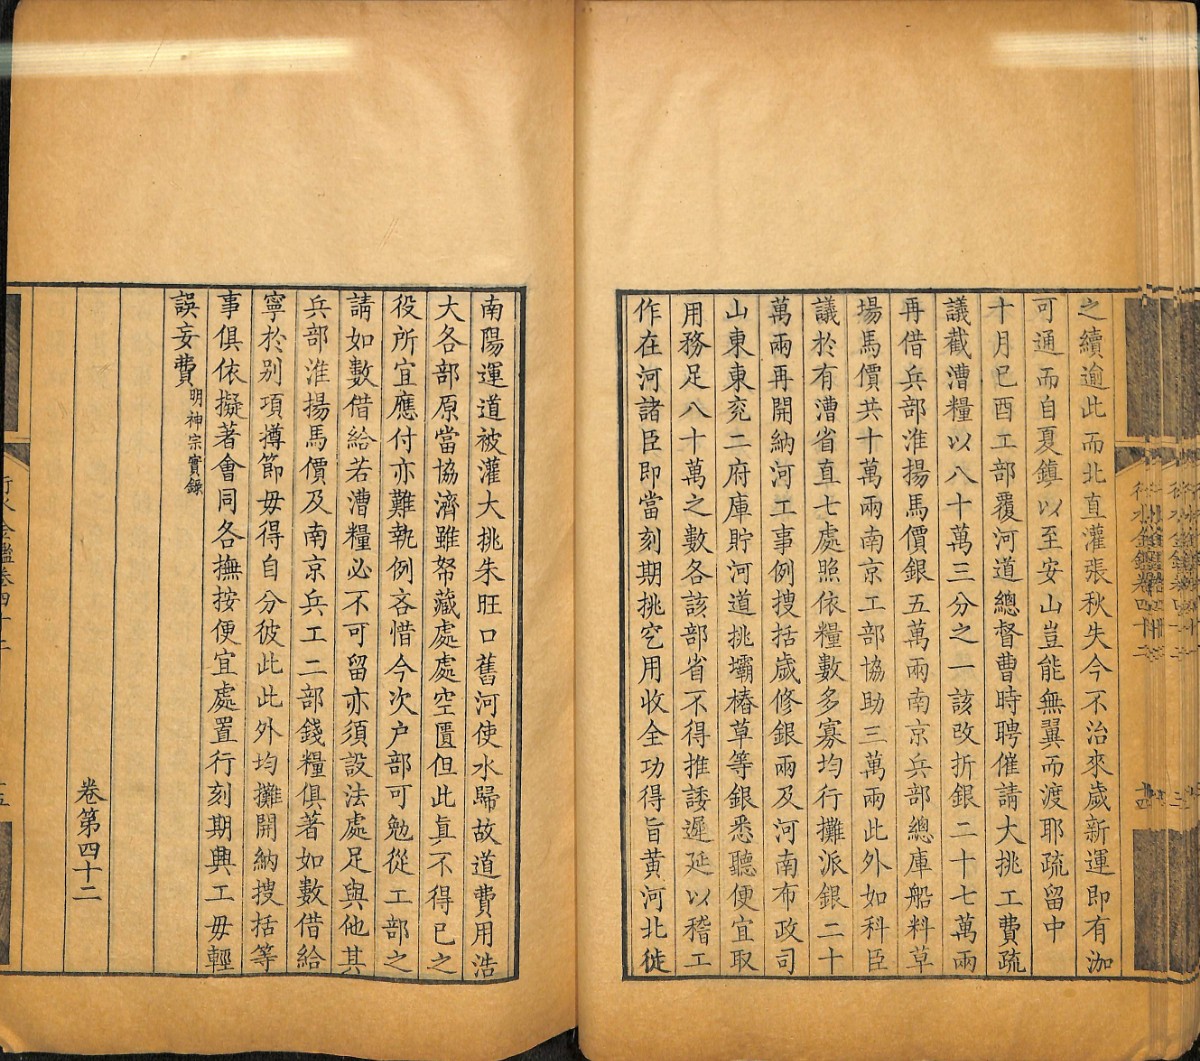 之續逾此而北直灌張秋失今不治來歲新運即有泇
可通而自夏鎮以至安山豈能無翼而渡耶疏留中
十月己酉工部覆河道總督曹時聘催請大挑工費疏
議截漕糧以八十萬三分之一該改折銀二十七萬兩
再借兵部淮揚馬價銀五萬兩南京兵部總庫船料草
場馬價共十萬兩南京工部協助三萬兩此外如科臣
議於有漕省直七處照依糧數多寡均行攤派銀二十
萬兩再開納河工事例搜括歲修銀兩及河南布政司
山東東兖二府庫貯河道挑壩樁草等銀悉聽便宜取
用務足八十萬之數各該部省不得推諉遲延以稽工
作在河諸臣即當刻期挑穵用收全功得旨黃河北徙
南陽運道被灌大挑朱旺口舊河使水歸故道費用浩
大各部原當協濟雖帑藏處處空匱但此眞不得已之
役所宜應付亦難執例吝惜今次户部可勉從工部之
請如數借給若漕糧必不可留亦須設法處足與他其
兵部淮揚馬價及南京兵工二部錢糧俱著如數借給
寧於别項撙節毋得自分彼此此外均攤開納搜括等
事俱依擬著會同各撫按便宜處置行刻期興工毋輕
誤妄費明神宗實錄
卷第四十二
行水金鑑卷四十二